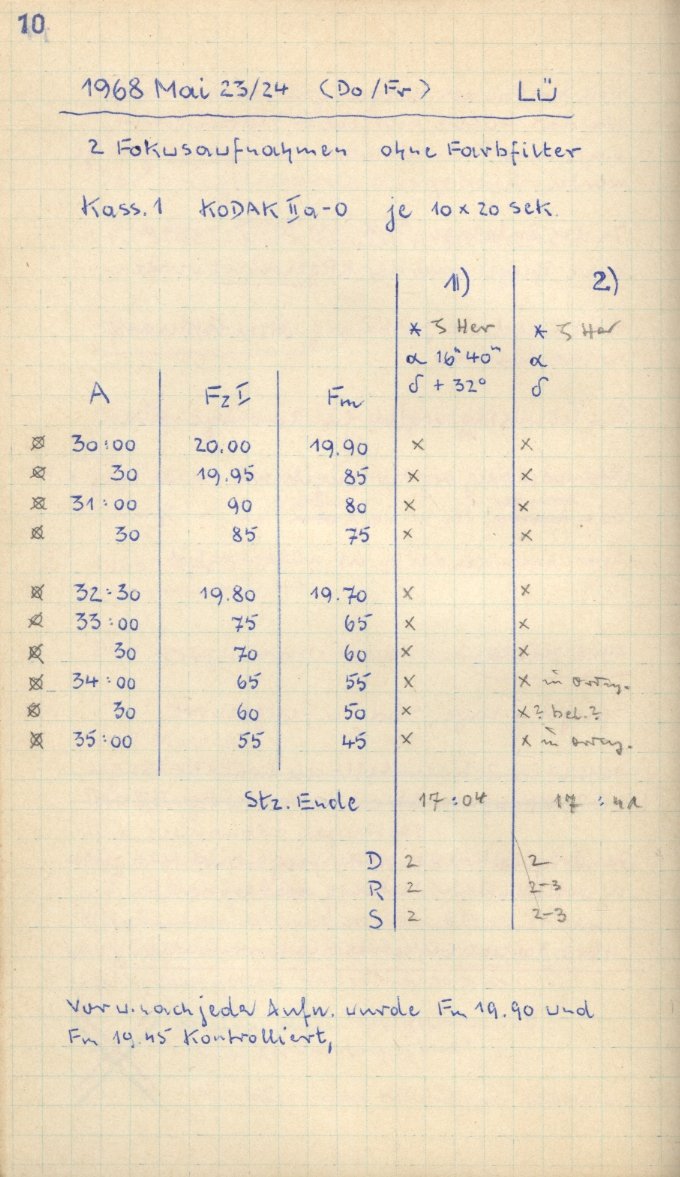 10
1968 Mai 23/24 (Do/Fr) LÜ
2 Fokusaufnahmen ohne Farbfilter
Kass. 1 KODAK II a-O je 10 x 20 sek.
1) 2)
* ζ Her * ζ Her
α 16ʰ 40ᵐ α
A Fz I Fm δ + 32° δ
30:00 20.00 19.90 x x
30 19.95 85 x x
31:00 90 80 x x
30 85 75 x x
32:30 19.80 19.70 x x
33:00 75 65 x x
30 70 60 x x
34:00 65 55 x x in
30 60 50 x x? bel.?
35:00 55 45 x x in
Stz. Ende 17:04 17:41
D 2 2
R 2 2-3
S 2 2-3
Vor u. nach jeder Aufn. wurde Fm 19.90 und
Fm 19.45 Kontrolliert,